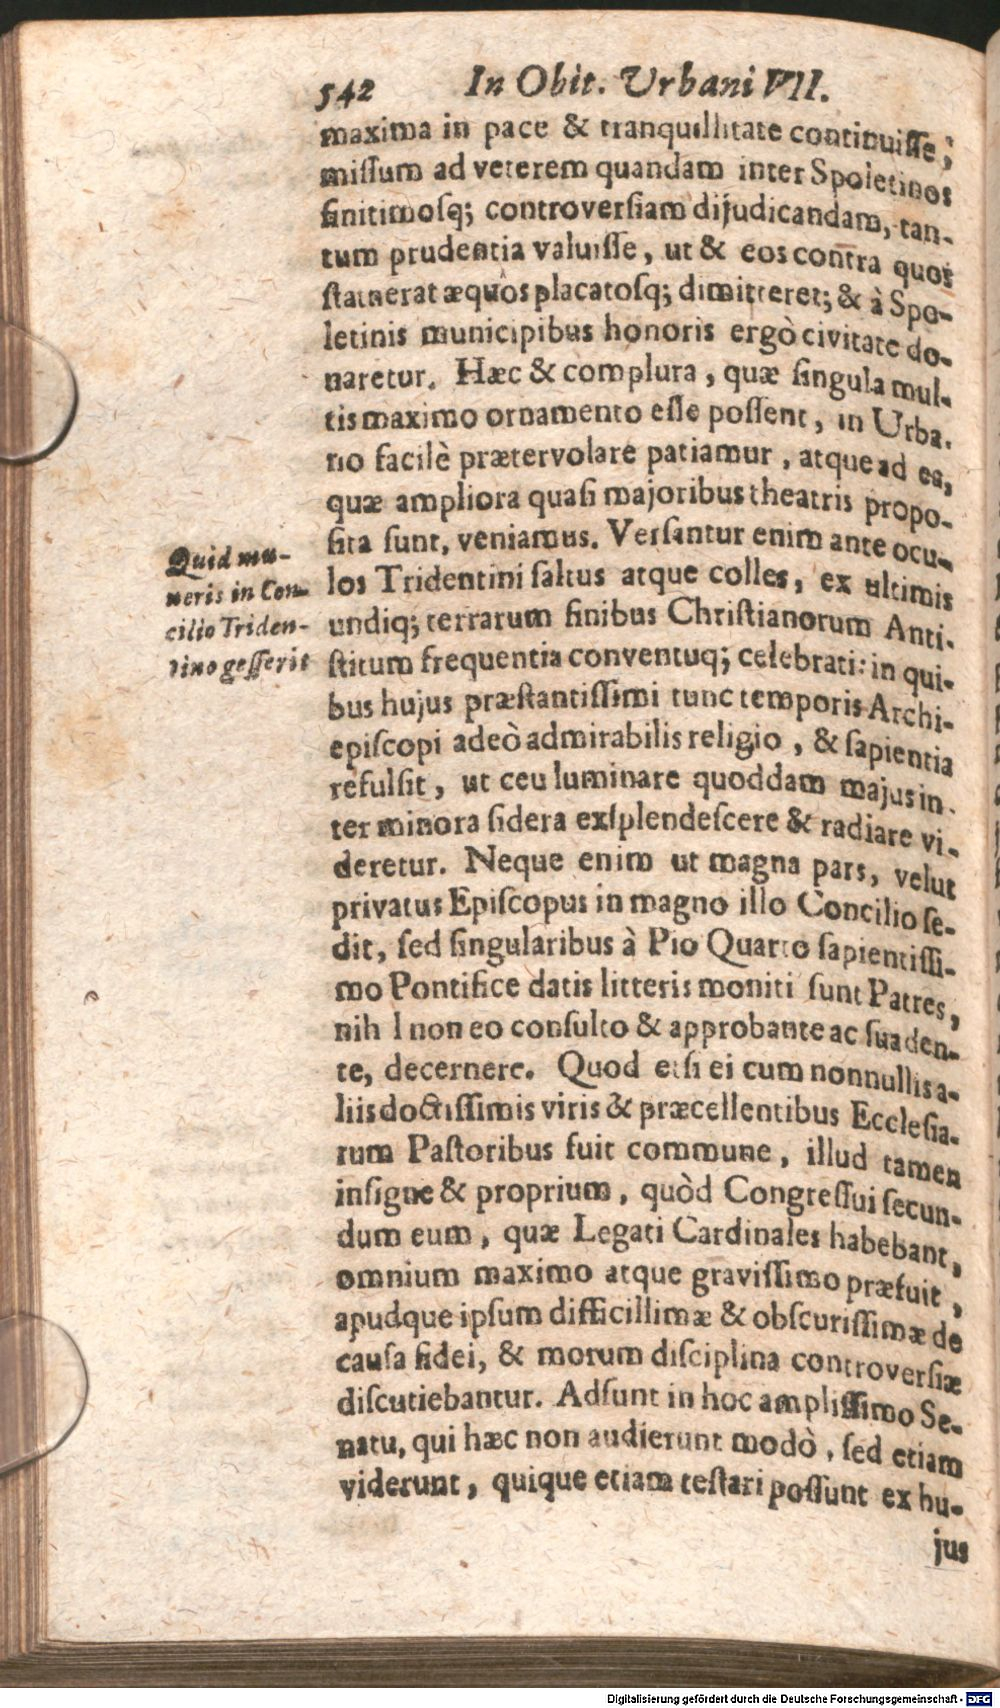 542 In Obit. Urbani VII.
maxima in pace & tranquillitate continuiſſe;
miſſum ad veterem quandam inter Spoletinos
finitimoſq; controverſiam dijudicandam, tan-
tum prudentia valuiſſe, ut & eos contra quos
ſtatuerat æquos placatoſq; dimitteret; & à Spo-
letinis municipibus honoris ergò civitate do-
naretur. Hæc & complura, quæ ſingula mul-
tis maximo ornamento eſſe poſſent, in Urba-
no facilè prætervolare patiamur, atque ad ea,
quæ ampliora quaſi majoribus theatris propo-
ſita ſunt, veniamus. Verſantur enim ante ocu-
Quid mu-
neris in Con-
cilio Triden-
tino geſſerit
los Tridentini ſaltus atque colles, ex ultimis
undiq; terrarum finibus Chriſtianorum Anti-
ſtitum frequentia conventuq; celebrati: in qui-
bus hujus præſtantiſſimi tunc temporis Archi-
epiſcopi adeò admirabilis religio, & ſapientia
refulſit, ut ceu luminare quoddam majus in-
ter minora ſidera exſplendeſcere & radiare vi-
deretur. Neque enim ut magna pars, velut
privatus Epiſcopus in magno illo Concilio ſe-
dit, ſed ſingularibus à Pio Quarto ſapientiſſi-
mo Pontifice datis litteris moniti ſunt Patres,
nih l non eo conſulto & approbante ac ſuaden-
te, decernere. Quod etſi ei cum nonnullis a-
liis doctiſſimis viris & præcellentibus Eccleſia-
rum Paſtoribus fuit commune, illud tamen
inſigne & proprium, quòd Congreſſui ſecun-
dum eum, quæ Legati Cardinales habebant,
omnium maximo atque graviſſimo præfuit,
apudque ipſum difficillimæ & obſcuriſſimæ de
cauſa fidei, & morum diſciplina controverſiæ
diſcutiebantur. Adſunt in hoc ampliſſimo Se-
natu, qui hæc non audierunt modò, ſed etiam
viderunt, quique etiam teſtari poſſunt ex hu-
jus
Digitalisierung gefördert durch die Deutsche Forschungsgemeinschaft - DFG